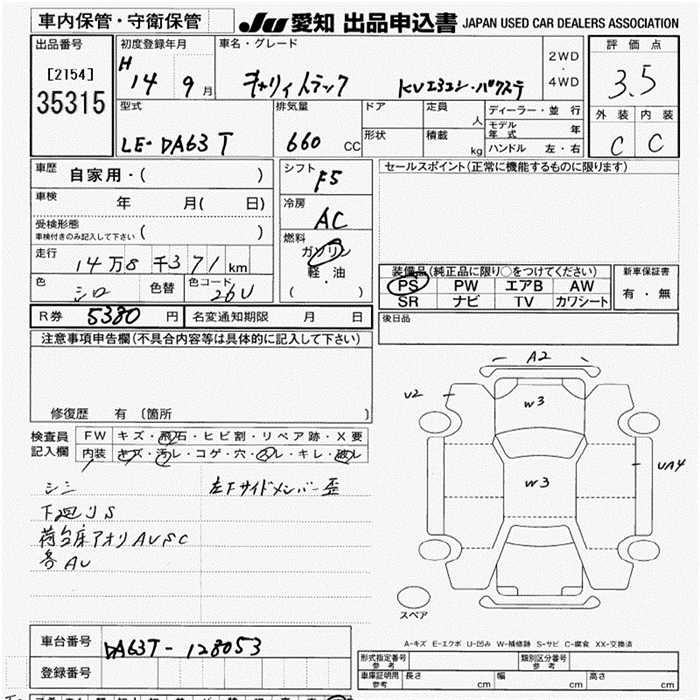 車内保管・守衛保管
JU 愛知 出品申込書 JAPAN USED CAR DEALERS ASSOCIATION
出品番号
[2154]
35315
初度登録年月
H 14 9 月
車名・グレード
キャリイトラック KUエアコン・パワステ
2WD
・
4WD
評価点
3.5
外装 内装
C C
型式
LE-DA63T
排気量
660 CC
ドア
形状
定員
人
積載
kg
ディーラー・並行
モデル年式 年
ハンドル 左・右
車歴
自家用・( )
車検 年 月( 日)
受検形態
車検付きのみ記入して下さい ( )
走行
14万8千371km
色 シロ 色替 色コード 26U
シフト
F5
冷房
AC
燃料
ガソリン
・
軽油
・
( )
セールスポイント(正常に機能するものに限ります)
装備品(純正品に限り○をつけてください)
PS PW エアB AW
SR ナビ TV カワシート
新車保証書
有・無
R券 5380 円 名変通知期限 月 日
後日品
注意事項申告欄(不具合内容等は具体的に記入して下さい)
修復歴 有 〔箇所 〕
検査員
記入欄
FW キズ・飛石・ヒビ割・リペア跡・X要
内装 キズ・汚レ・コゲ・穴・スレ・キレ・破レ
シミ 左下サイドメンバー歪
下廻りS
荷台床アオリAUSC
各AU
A2
U2
W3
W3
UA4
スペア
A-キズ E-エクボ U-凹み W-補修跡 S-サビ C-腐食 XX-交換済
車台番号 DA63T-128053
登録番号
形式指定番号
参考
類別区分番号
参考
車庫証明用
参考
長さ cm 幅 cm 高さ cm